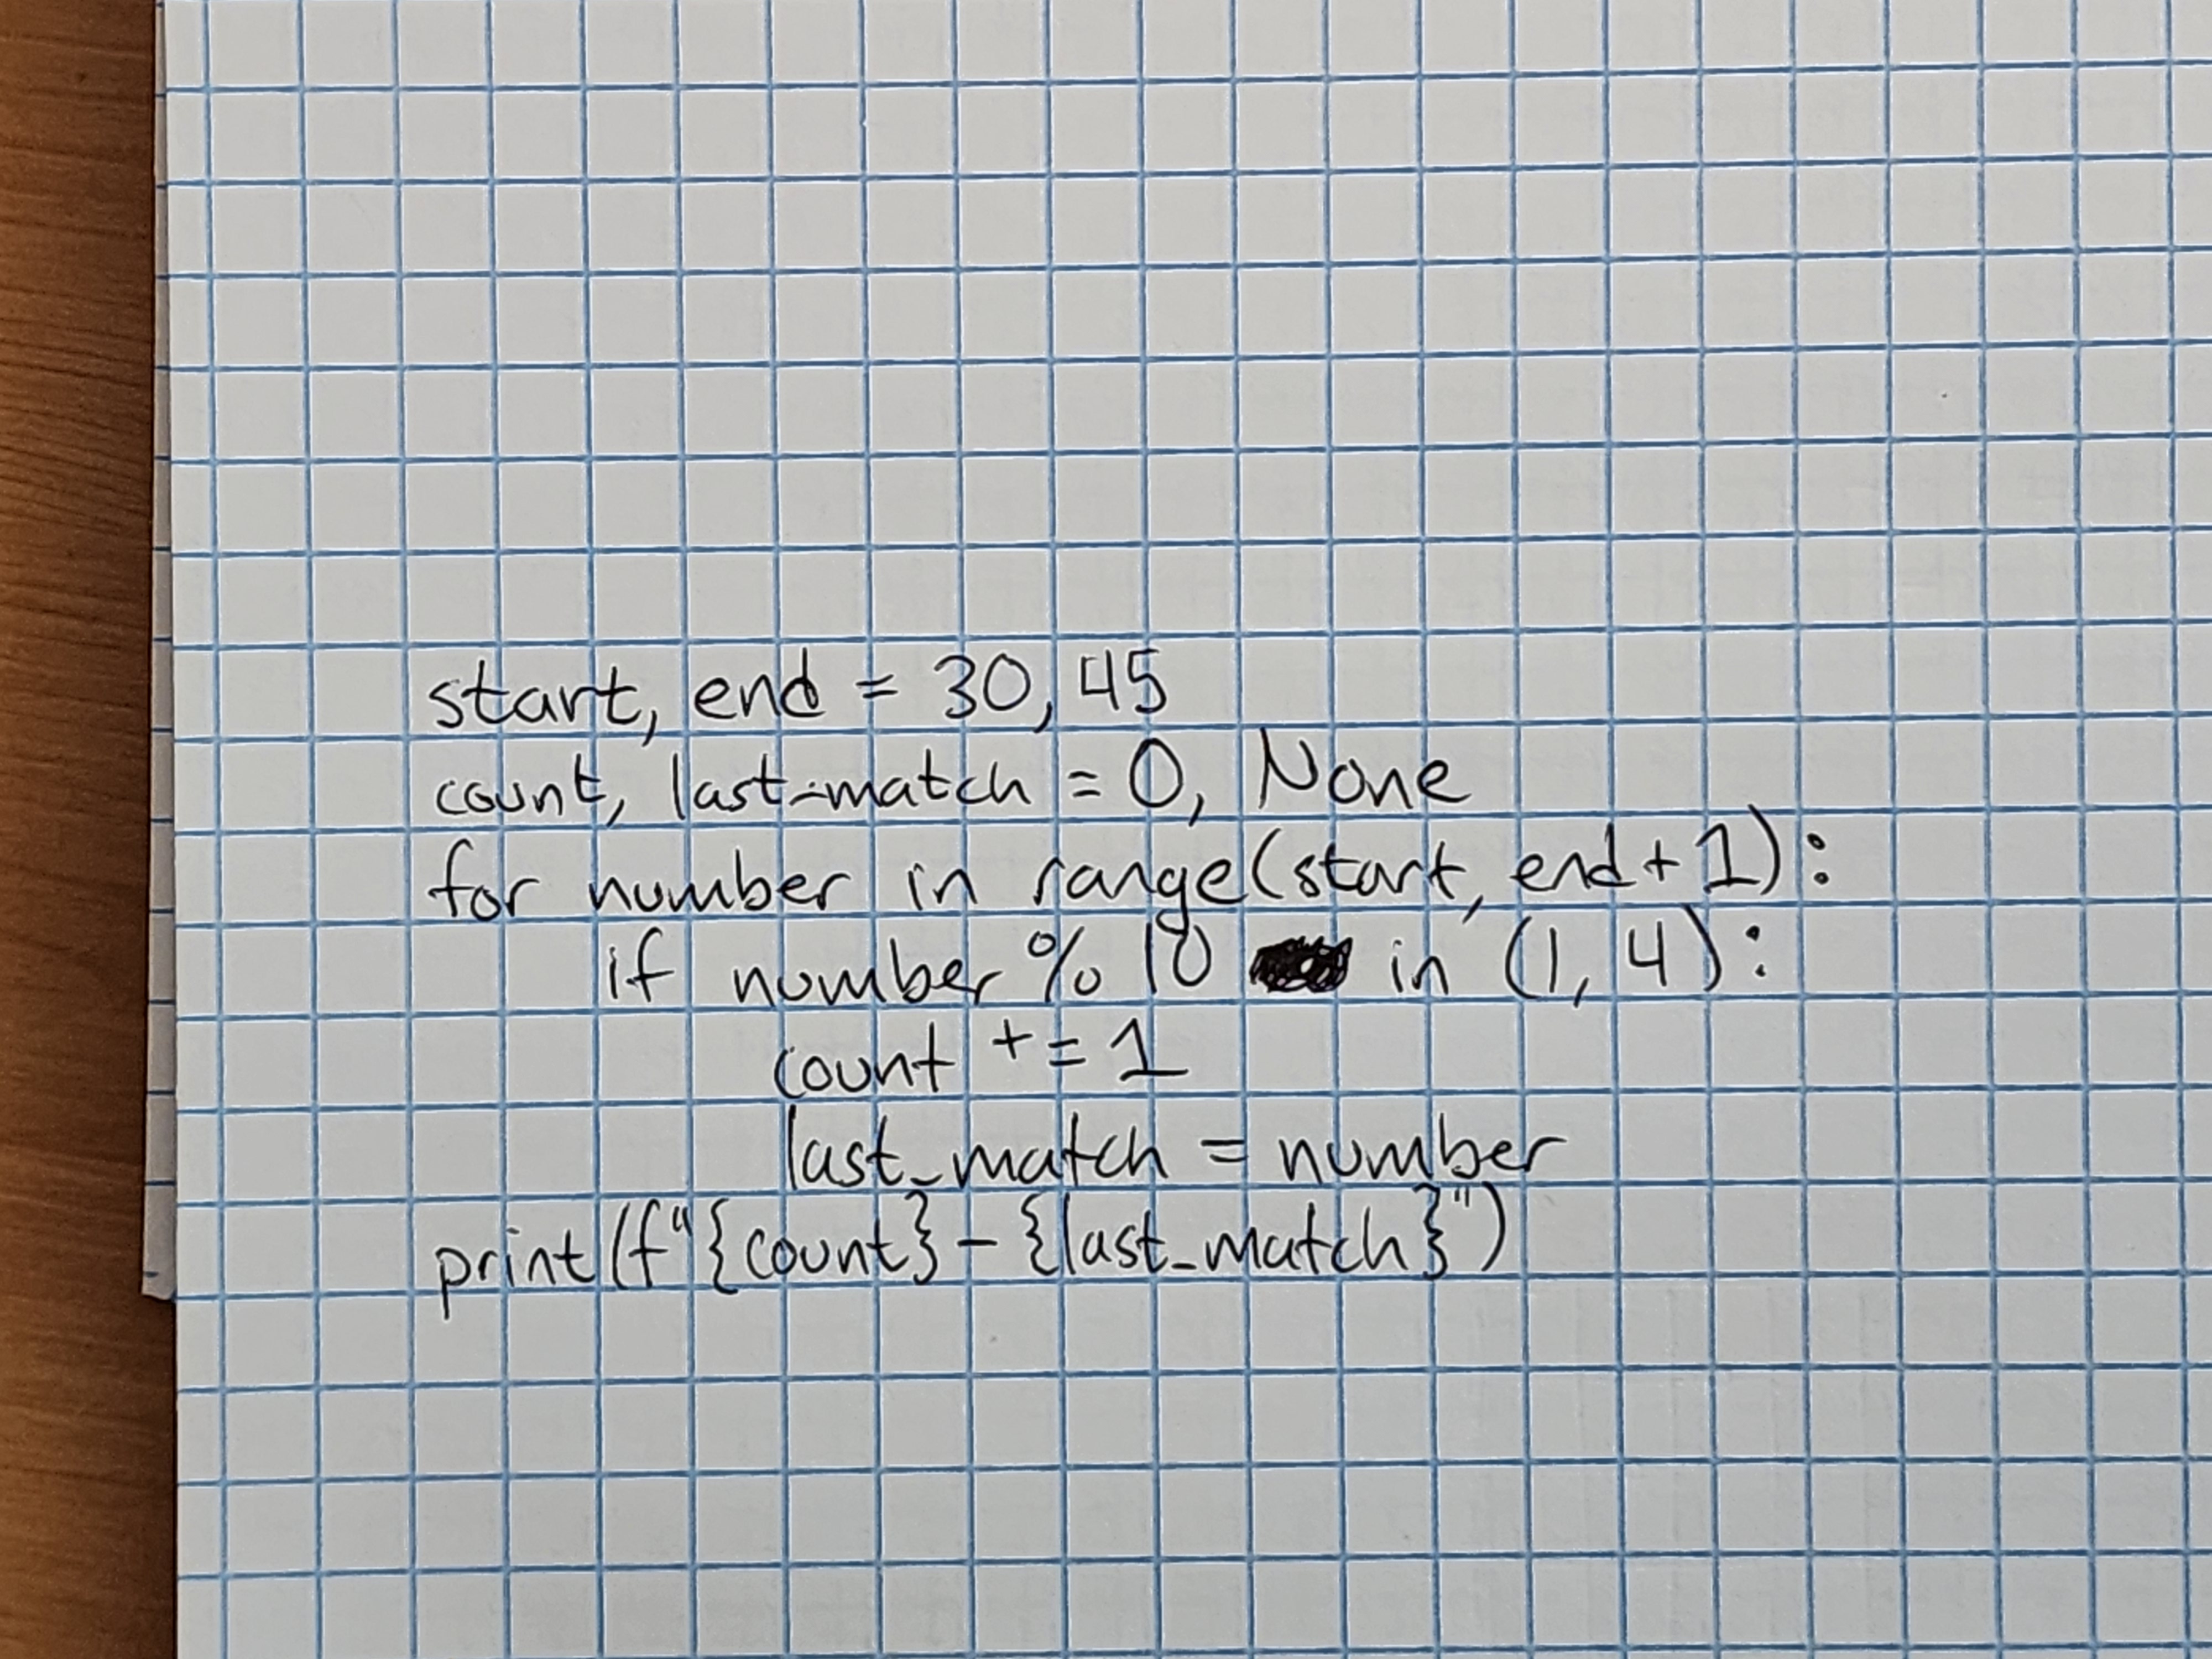 start, end = 30, 45
count, last_match = 0, None
for number in range(start, end + 1):
if number % 10 in (1, 4):
count += 1
last_match = number
print(f"{count} - {last_match}")